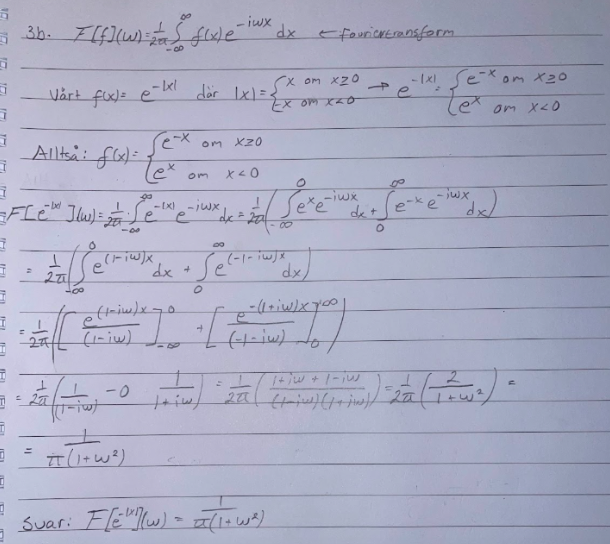 3b. F[f](w) = 1/2π ∫_{-∞}^{∞} f(x) e^{-iwx} dx ← Fouriertransform
Vårt f(x) = e^{-|x|} där |x| = { x om x≥0, -x om x<0 → e^{-|x|} = { e^{-x} om x≥0, e^{x} om x<0
Alltså: f(x) = { e^{-x} om x≥0, e^{x} om x<0
F[e^{-|x|}](w) = 1/2π ∫_{-∞}^{∞} e^{-|x|} e^{-iwx} dx = 1/2π ( ∫_{-∞}^{0} e^{x} e^{-iwx} dx + ∫_{0}^{∞} e^{-x} e^{-iwx} dx )
= 1/2π ( ∫_{-∞}^{0} e^{(1-iw)x} dx + ∫_{0}^{∞} e^{(-1-iw)x} dx )
= 1/2π ( [ e^{(1-iw)x} / (1-iw) ]_{-∞}^{0} + [ e^{-(1+iw)x} / (-1-iw) ]_{0}^{∞} )
= 1/2π ( 1/(1-iw) - 0 1/(1+iw) ) = 1/2π ( (1+iw+1-iw) / ((1-iw)(1+iw)) ) = 1/2π ( 2/(1+w²) ) =
= 1/(π(1+w²))
Svar: F[e^{-|x|}](w) = 1/(π(1+w²))